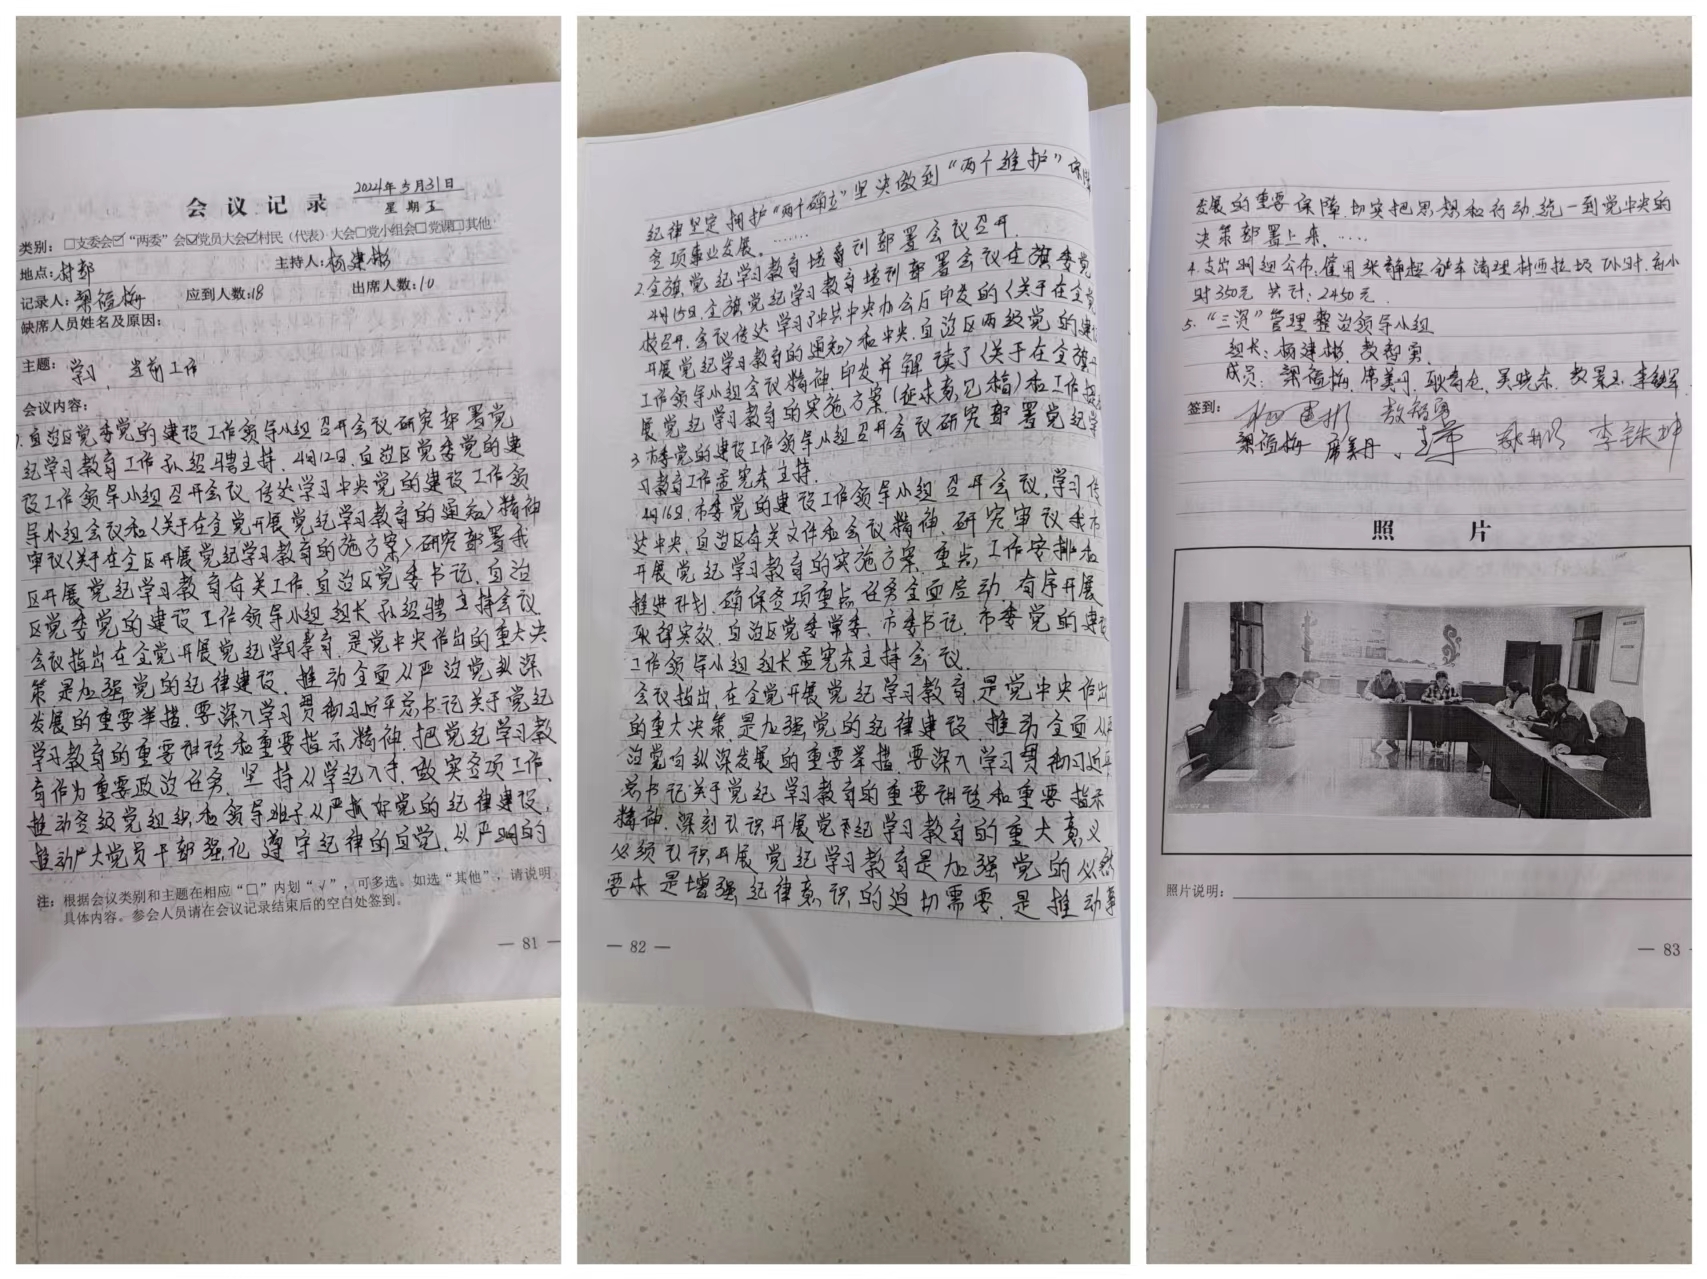 会议记录
2024年5月31日
星期五
类别：□支委会☑“两委”会☑党员大会☑村民（代表）大会□党小组会□党课□其他
地点：村部 主持人：杨建彬
记录人：梁福梅 应到人数：18 出席人数：10
缺席人员姓名及原因：
主题：学习，当前工作
会议内容：
1. 自治区党委党的建设工作领导小组召开会议研究部署党
纪学习教育工作孙绍骋主持，4月12日，自治区党委党的建
设工作领导小组召开会议，传达学习中央党的建设工作领
导小组会议和《关于在全党开展党纪学习教育的通知》精神
审议《关于在全区开展党纪学习教育的施方案》研究部署我
区开展党纪学习教育有关工作，自治区党委书记，自治
区党委党的建设工作领导小组组长孙绍骋主持会议
会议指出在全党开展党纪学习教育，是党中央作出的重大决
策是加强党的纪律建设，推动全面从严治党纵深
发展的重要举措，要深入学习贯彻习近平总书记关于党纪
学习教育的重要讲话和重要指示精神，把党纪学习教
育作为重要政治任务，坚持从学纪入手，做实各项工作，
推动各级党组织和领导班子从严抓好党的纪律建设，
推动广大党员干部强化遵守纪律的自觉，以严明的
注：根据会议类别和主题在相应“□”内划“√”，可多选。如选“其他”，请说明
具体内容。参会人员请在会议记录结束后的空白处签到。
— 81 —
纪律坚定拥护“两个确立”坚决做到“两个维护”保障
各项事业发展，……
2. 全旗党纪学习教育培育训部署会议召开
4月15日，全旗党纪学习教育培训部署会议在旗委党
校召开，会议传达学习了中共中央办公厅印发的《关于在全党
开展党纪学习教育的通知》和中央、自治区两级党的建设
工作领导小组会议精神，印发并解读了《关于在全旗开
展党纪学习教育的实施方案，（征求意见稿）和工作
3 市委党的建设工作领导小组召开会议研究部署党纪学
习教育工作孟宪东主持。
4月16日，市委党的建设工作领导小组召开会议，学习传
达中央，自治区有关文件和会议精神，研究审议我市
开展党纪学习教育的实施方案，重点工作安排和
推进计划，确保各项重点任务全面启动，有序开展
取得实效，自治区党委常委，市委书记，市委党的建设
工作领导小组组长孟宪东主持会议。
会议指出，在全党开展党纪学习教育，是党中央作出
的重大决策是加强党的纪律建设，推动全面从严
治党向纵深发展的重要举措，要深入学习贯彻习近平
总书记关于党纪学习教育的重要讲话和重要指示
精神，深刻认识开展党纪学习教育的重大意义
必须认识开展党纪学习教育是加强党的必然
要求是增强纪律意识的迫切需要，是推动事
— 82 —
发展的重要保障，切实把思想和行动统一到党中央的
决策部署上来，……
4. 支出明细公布，雇用张静超铲车清理村西垃圾7小时，每小
时350元 共计：2450元。
5. “三资”管理整治领导小组
组长：杨建彬、敖智勇
成员：梁福梅，席美丹，吴晓东，李铁军
签到：杨建彬 敖智勇
梁福梅 席美丹
照 片
照片说明：
— 83 —